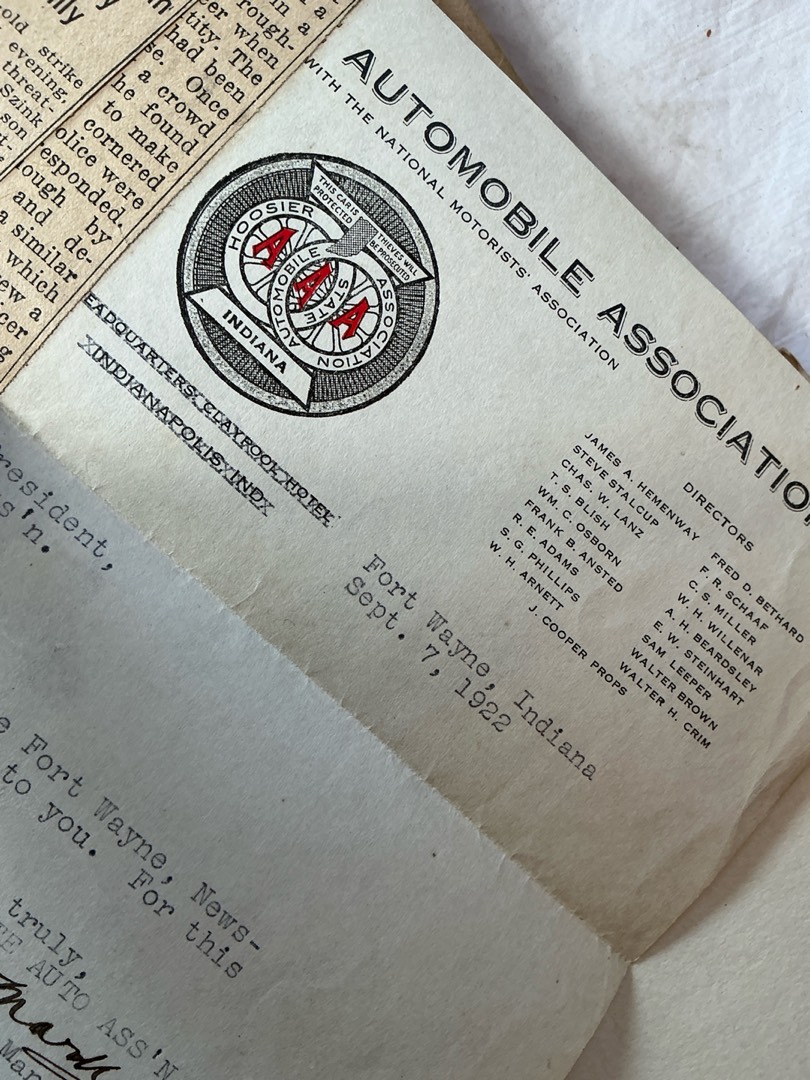 AUTOMOBILE ASSOCIATION
WITH THE NATIONAL MOTORISTS' ASSOCIATION
THIS CAR IS
PROTECTED
THIEVES WILL
BE PROSECUTED
HOOSIER
STATE
AUTOMOBILE
ASSOCIATION
A A A
INDIANA
EADQUARTERS, CLAYPOOL HOTEL
INDIANAPOLIS, IND.
DIRECTORS
JAMES A. HEMENWAY
STEVE STALCUP
CHAS. W. LANZ
T. S. BLISH
WM. C. OSBORN
FRANK B. ANSTED
R. E. ADAMS
S. G. PHILLIPS
W. H. ARNETT
J. COOPER PROPS
FRED D. BETHARD
F. R. SCHAAF
C. S. MILLER
W. H. WILLENAR
A. H. BEARDSLEY
E. W. STEINHART
SAM LEEPER
WALTER BROWN
WALTER H. CRIM
Fort Wayne, Indiana
Sept. 7, 1922
resident,
ss'n.
e Fort Wayne, News-
to you. For this
truly,
TE AUTO ASS'N
Man
old strike
evening,
threat-
Szink
son
in a
rough-
er when
tity. The
had been
se. Once
a crowd
he found
to make
cornered
olice were
esponded.
ough by
and de-
a similar
which
ew a
cer
g